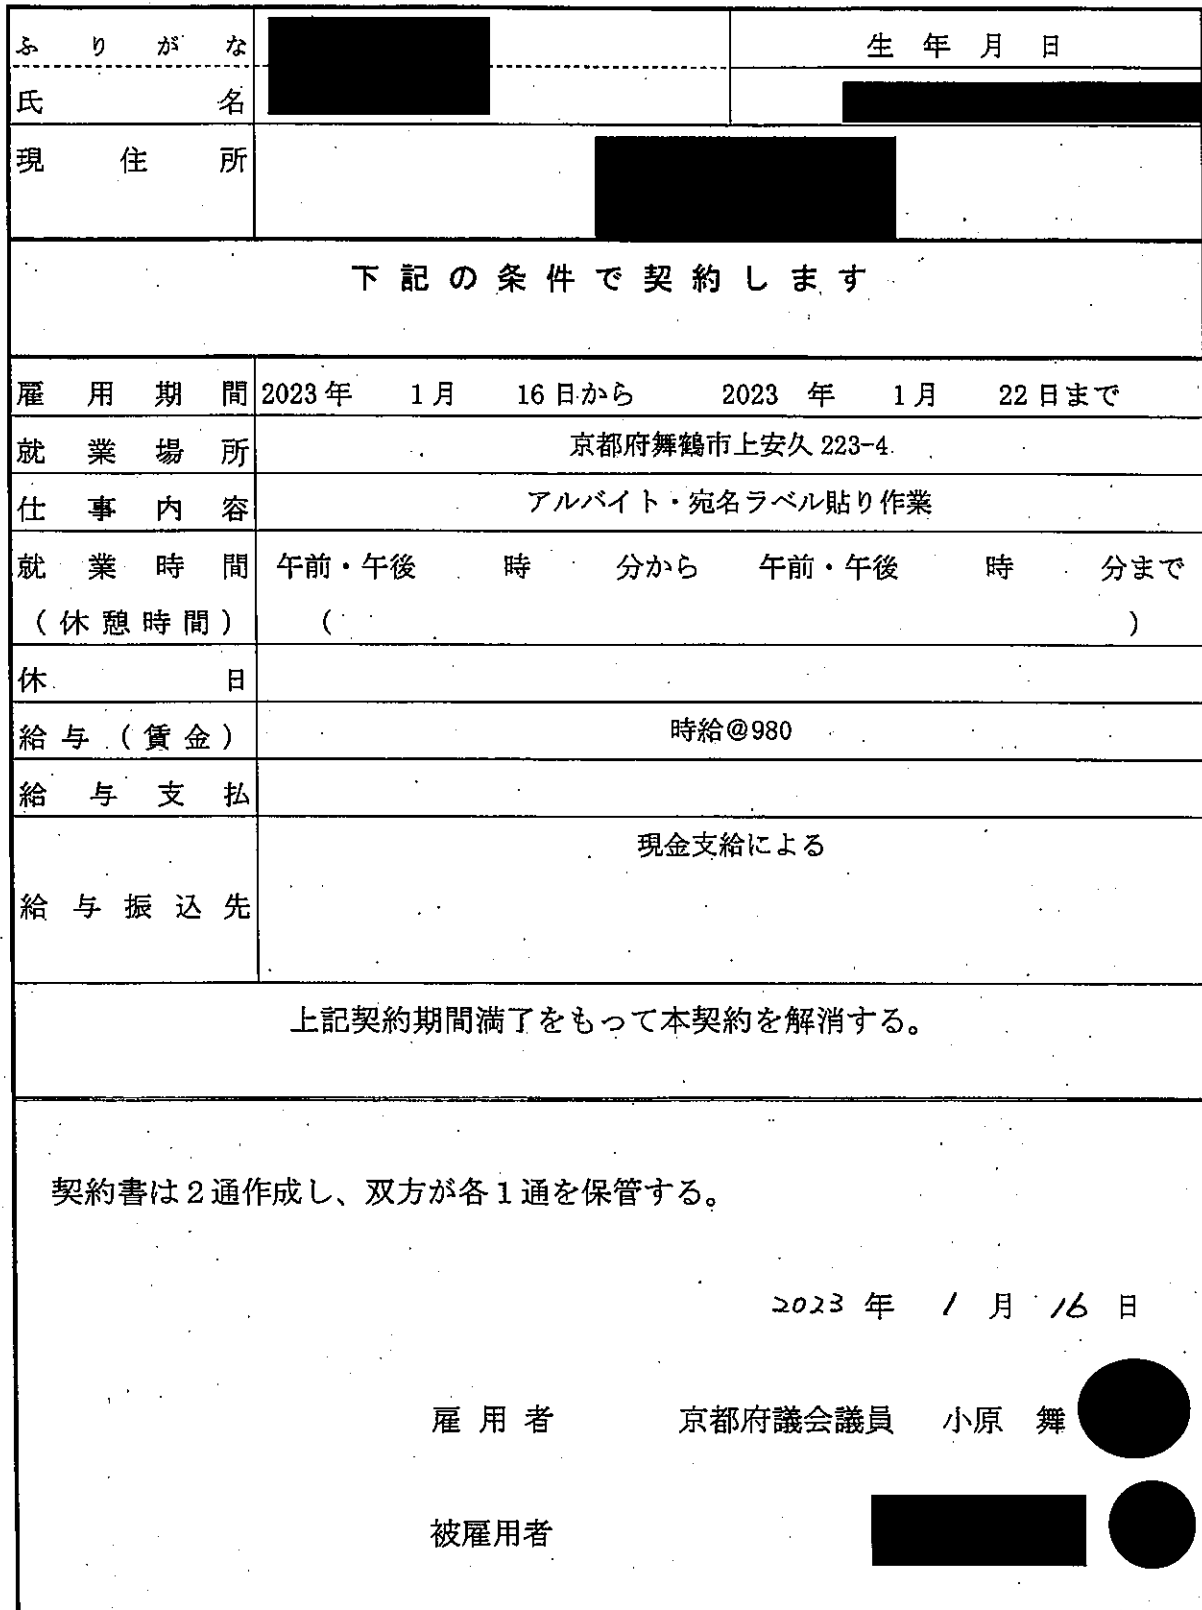 ふりがな
生年月日
氏名
現住所
下記の条件で契約します
雇用期間 2023年 1月 16日から 2023 年 1月 22日まで
就業場所 京都府舞鶴市上安久 223-4
仕事内容 アルバイト・宛名ラベル貼り作業
就業時間 午前・午後 時 分から 午前・午後 時 分まで
(休憩時間) ( )
休日
給与(賃金) 時給@980
給与支払
現金支給による
給与振込先
上記契約期間満了をもって本契約を解消する。
契約書は2通作成し、双方が各1通を保管する。
2023 年 1 月 16 日
雇用者 京都府議会議員 小原 舞
被雇用者